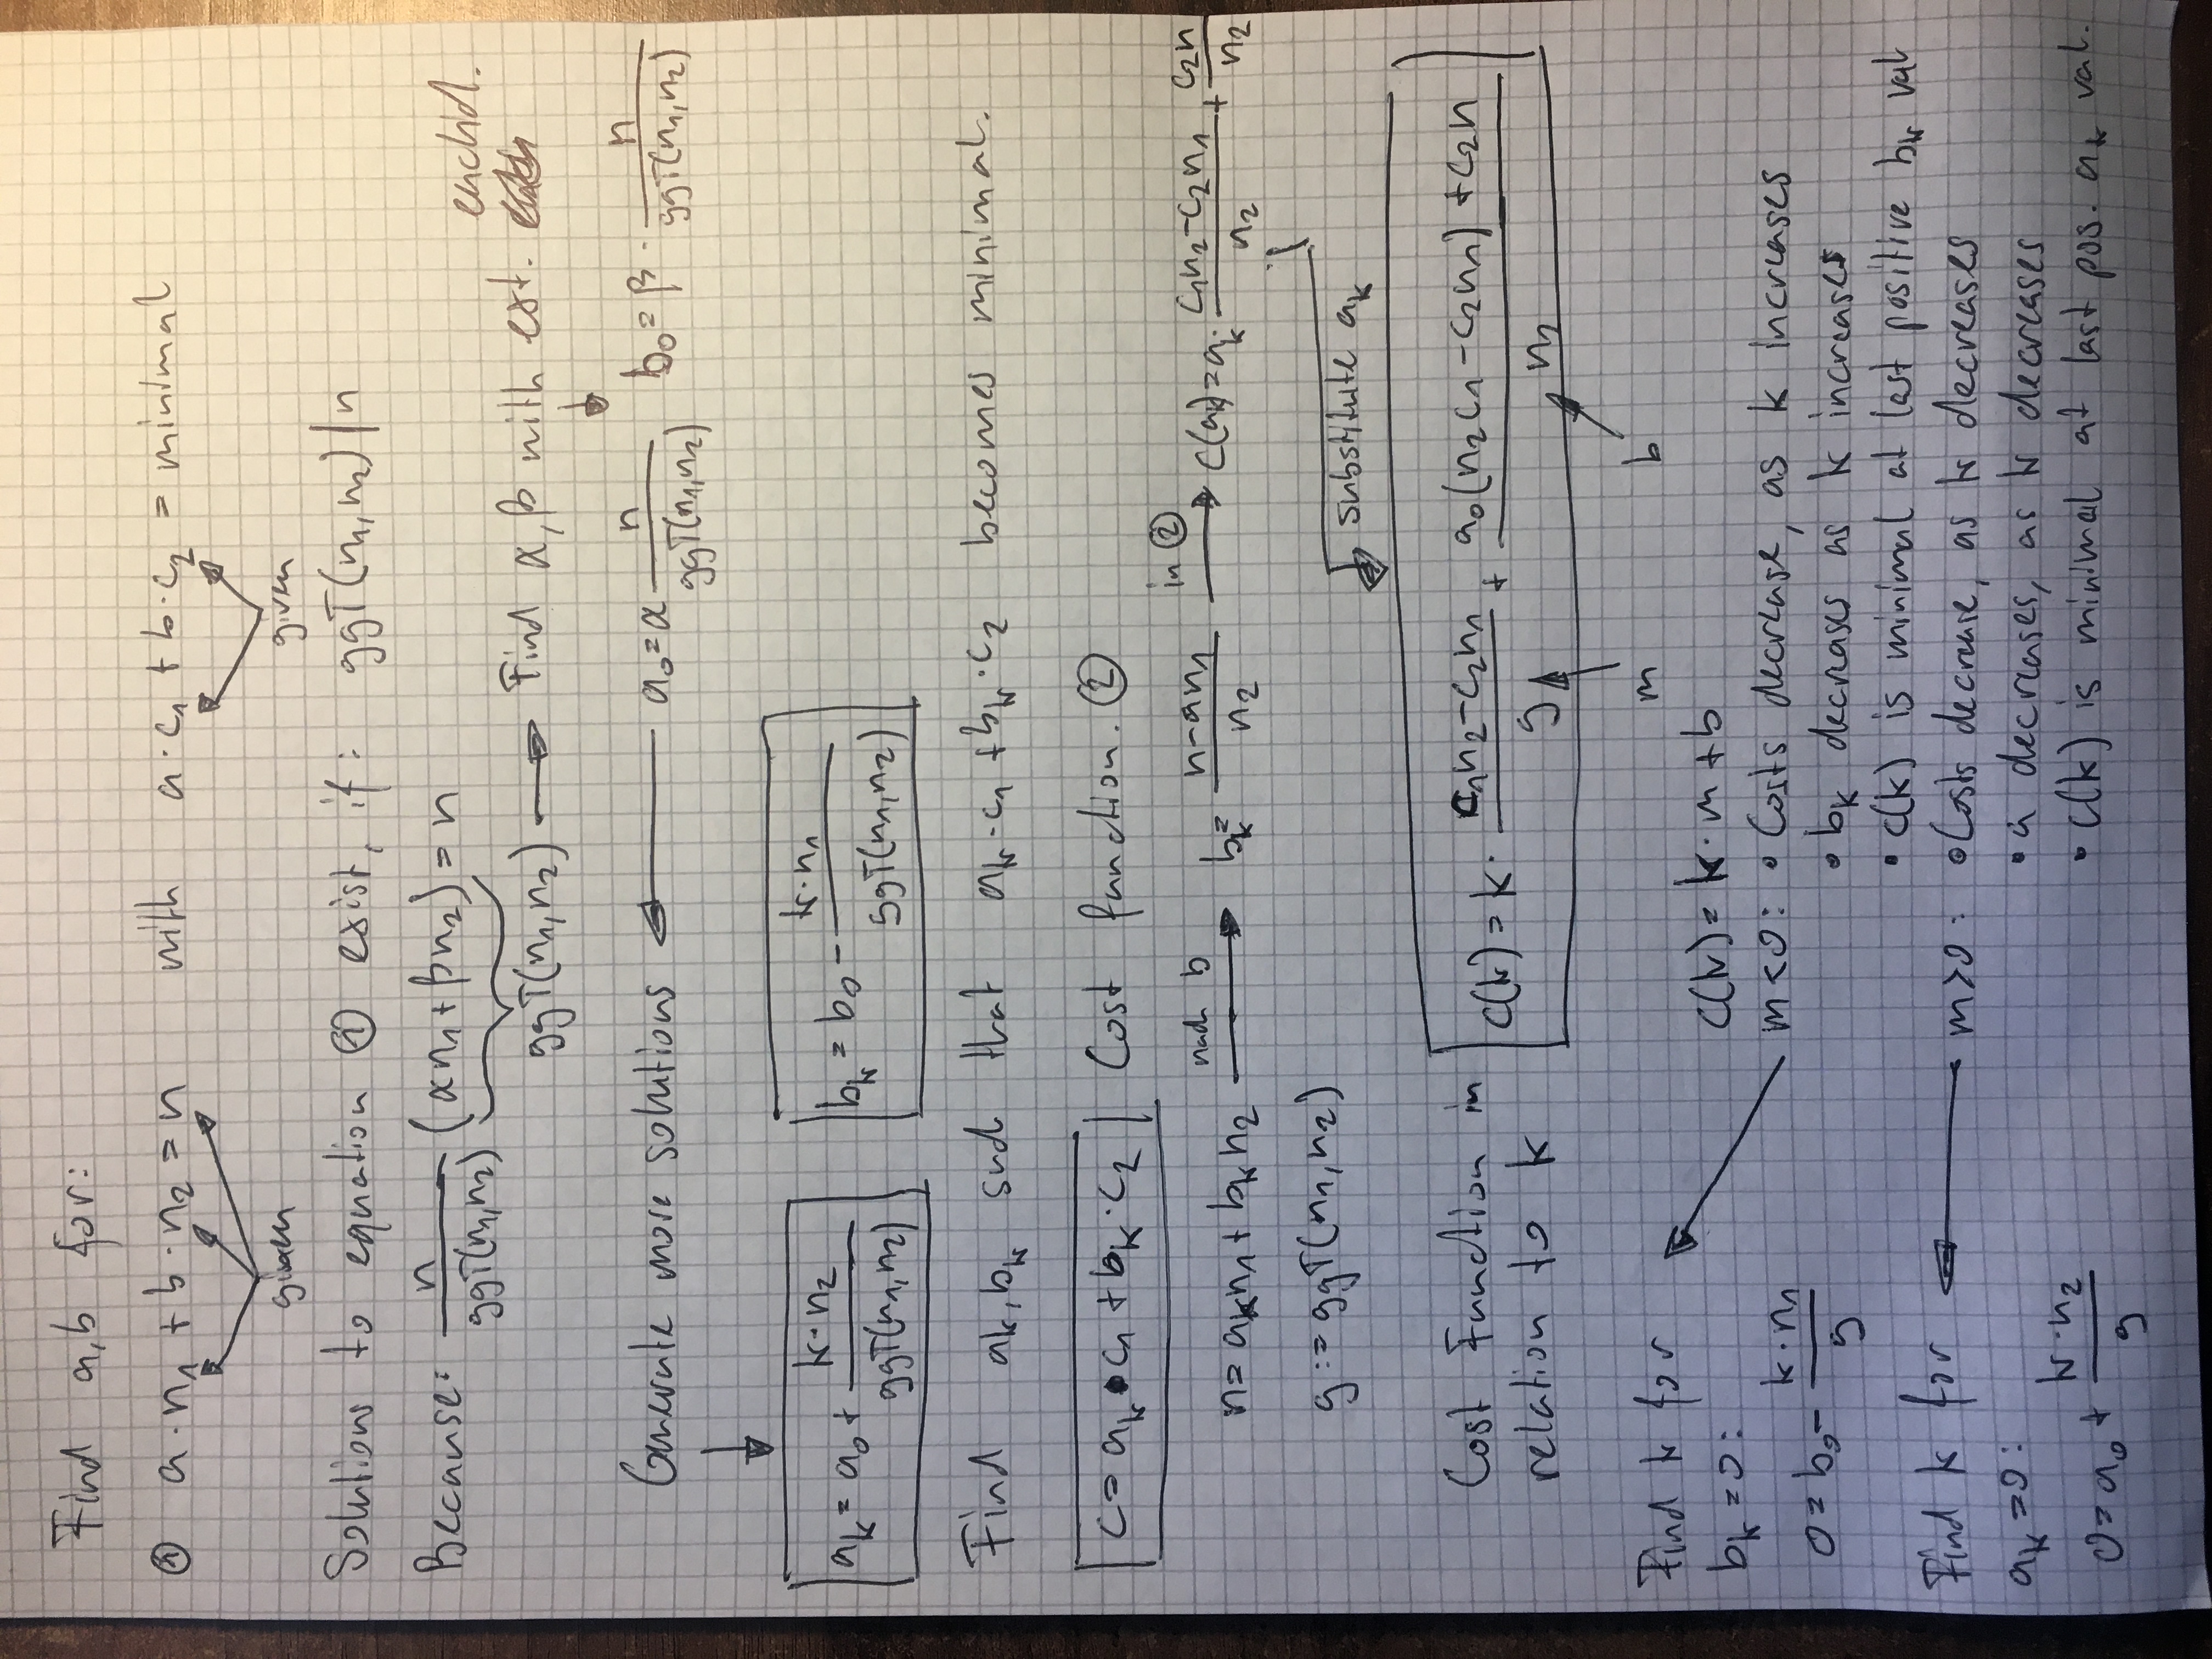 Find a,b for:
① a·n₁ + b·n₂ = n with a·c₁ + b·c₂ = minimal
given given
Solutions to equation ① exist, if: ggT(n₁,n₂)|n
Because: n/ggT(n₁,n₂) (αn₁+βn₂) = n
euclid.
ggT(n₁,n₂) → Find α,β with ext.
Generate more solutions ← a₀=α n/ggT(n₁,n₂) b₀=β · n/ggT(n₁,n₂)
aₖ = a₀ + k·n₂/ggT(n₁,n₂) bₖ = b₀ - k·n₁/ggT(n₁,n₂)
Find aₖ,bₖ such that aₖ·c₁ + bₖ·c₂ becomes minimal.
c = aₖ·c₁ + bₖ·c₂ Cost function. ②
n = aₖn₁ + bₖn₂ nach b → bₖ = n-an₁/n₂ in ② → c(aₖ) = aₖ· c₁n₂-c₂n₁/n₂ + c₂n/n₂
g := ggT(n₁,n₂)
substitute aₖ
Cost Function in relation to k c(k) = k· c₁n₂-c₂n₁/g + a₀(n₂c₁-c₂n₁)+c₂n/n₂
m b
Find k for
bₖ=0:
0 = b₀ - k·n₁/g
c(k) = k·m + b
m<0: • Costs decrease, as k increases
• bₖ decreases as k increases
• c(k) is minimal at last positive bₖ val
Find k for
aₖ=0:
0 = a₀ + k·n₂/g
m>0: • Costs decrease, as k decreases
• a decreases, as k decreases
• c(k) is minimal at last pos. aₖ val.